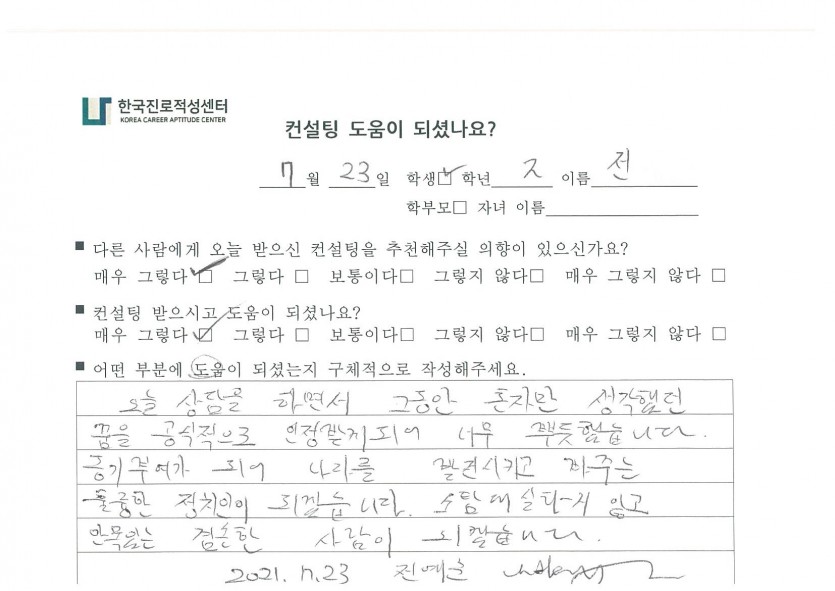 한국진로적성센터
KOREA CAREER APTITUDE CENTER
컨설팅 도움이 되셨나요?
7월 23일 학생☑ 학년 이름 전
학부모□ 자녀 이름
■ 다른 사람에게 오늘 받으신 컨설팅을 추천해주실 의향이 있으신가요?
매우 그렇다 ☑ 그렇다 □ 보통이다□ 그렇지 않다□ 매우 그렇지 않다 □
■ 컨설팅 받으시고 도움이 되셨나요?
매우 그렇다 ☑ 그렇다 □ 보통이다□ 그렇지 않다□ 매우 그렇지 않다 □
■ 어떤 부분에 도움이 되셨는지 구체적으로 작성해주세요.
오늘 상담을 하면서 그동안 혼자만 생각했던
꿈을 공식적으로 인정받게 되어 너무 뿌듯했습니다.
동기부여가 되어 나라를 발전시키고
훌륭한 정치인이 되겠습니다. 소탐대실하지 않고
안목있는 겸손한 사람이 되겠습니다.
2021. 7. 23 전예은